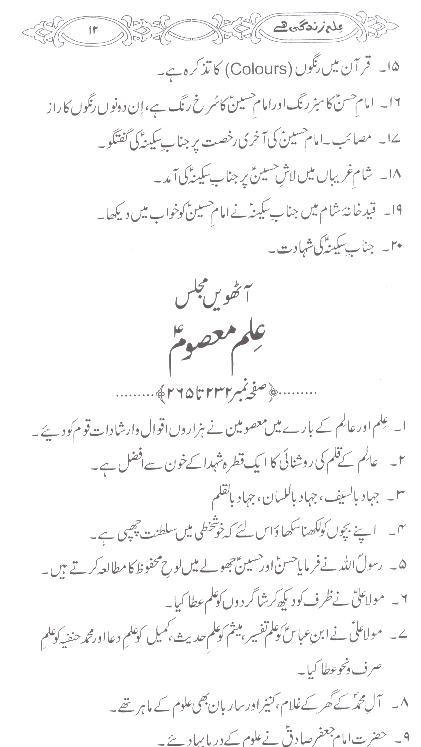 علم زندگی ہے
۱۲
۱۵۔ قرآن میں رنگوں (Colours) کا تذکرہ ہے۔
۱۶۔ امام حسنؑ کا سبز رنگ اور امام حسینؑ کا سُرخ رنگ ہے، اِن دونوں رنگوں کا راز
۱۷۔ مصائب۔ امام حسینؑ کی آخری رخصت پر جناب سکینہؑ کی گفتگو۔
۱۸۔ شامِ غریباں میں لاشِ حسینؑ پر جناب سکینہؑ کی آمد۔
۱۹۔ قید خانۂ شام میں جناب سکینہؑ نے امام حسینؑ کو خواب میں دیکھا۔
۲۰۔ جناب سکینہؑ کی شہادت۔
آٹھویں مجلس
عِلمِ معصومؑ
.........﴿صفحہ نمبر ۲۳۲ تا ۲۶۵﴾.........
۱۔ عِلم اور عالِم کے بارے میں معصومین نے ہزاروں اقوال و ارشادات قوم کو دیئے۔
۲۔ عالِم کے قلم کی روشنائی کا ایک قطرہ شہدا کے خون سے افضل ہے۔
۳۔ جہاد بالسیف، جہاد باللسان، جہاد بالقلم
۴۔ اپنے بچوں کو لکھنا سکھاؤ اس لئے کہ خوشخطی میں سلطنت چھپی ہے۔
۵۔ رسولؐ اللہ نے فرمایا حسنؑ اور حسینؑ جھولے میں لوحِ محفوظ کا مطالعہ کرتے ہیں۔
۶۔ مولا علیؑ نے ظرف کو دیکھ کر شاگردوں کو علم عطا کیا۔
۷۔ مولا علیؑ نے ابنِ عباسؑ کو علمِ تفسیر، میثم کو علمِ حدیث، کمیل کو علمِ دعا اور محمد حنفیہ کو علمِ
صرف و نحو عطا کیا۔
۸۔ آلِ محمدؐ کے گھر کے غلام، کنیز اور ساربان بھی علوم کے ماہر تھے۔
۹۔ حضرت امام جعفر صادقؑ نے علوم کے دریا بہا دیئے۔